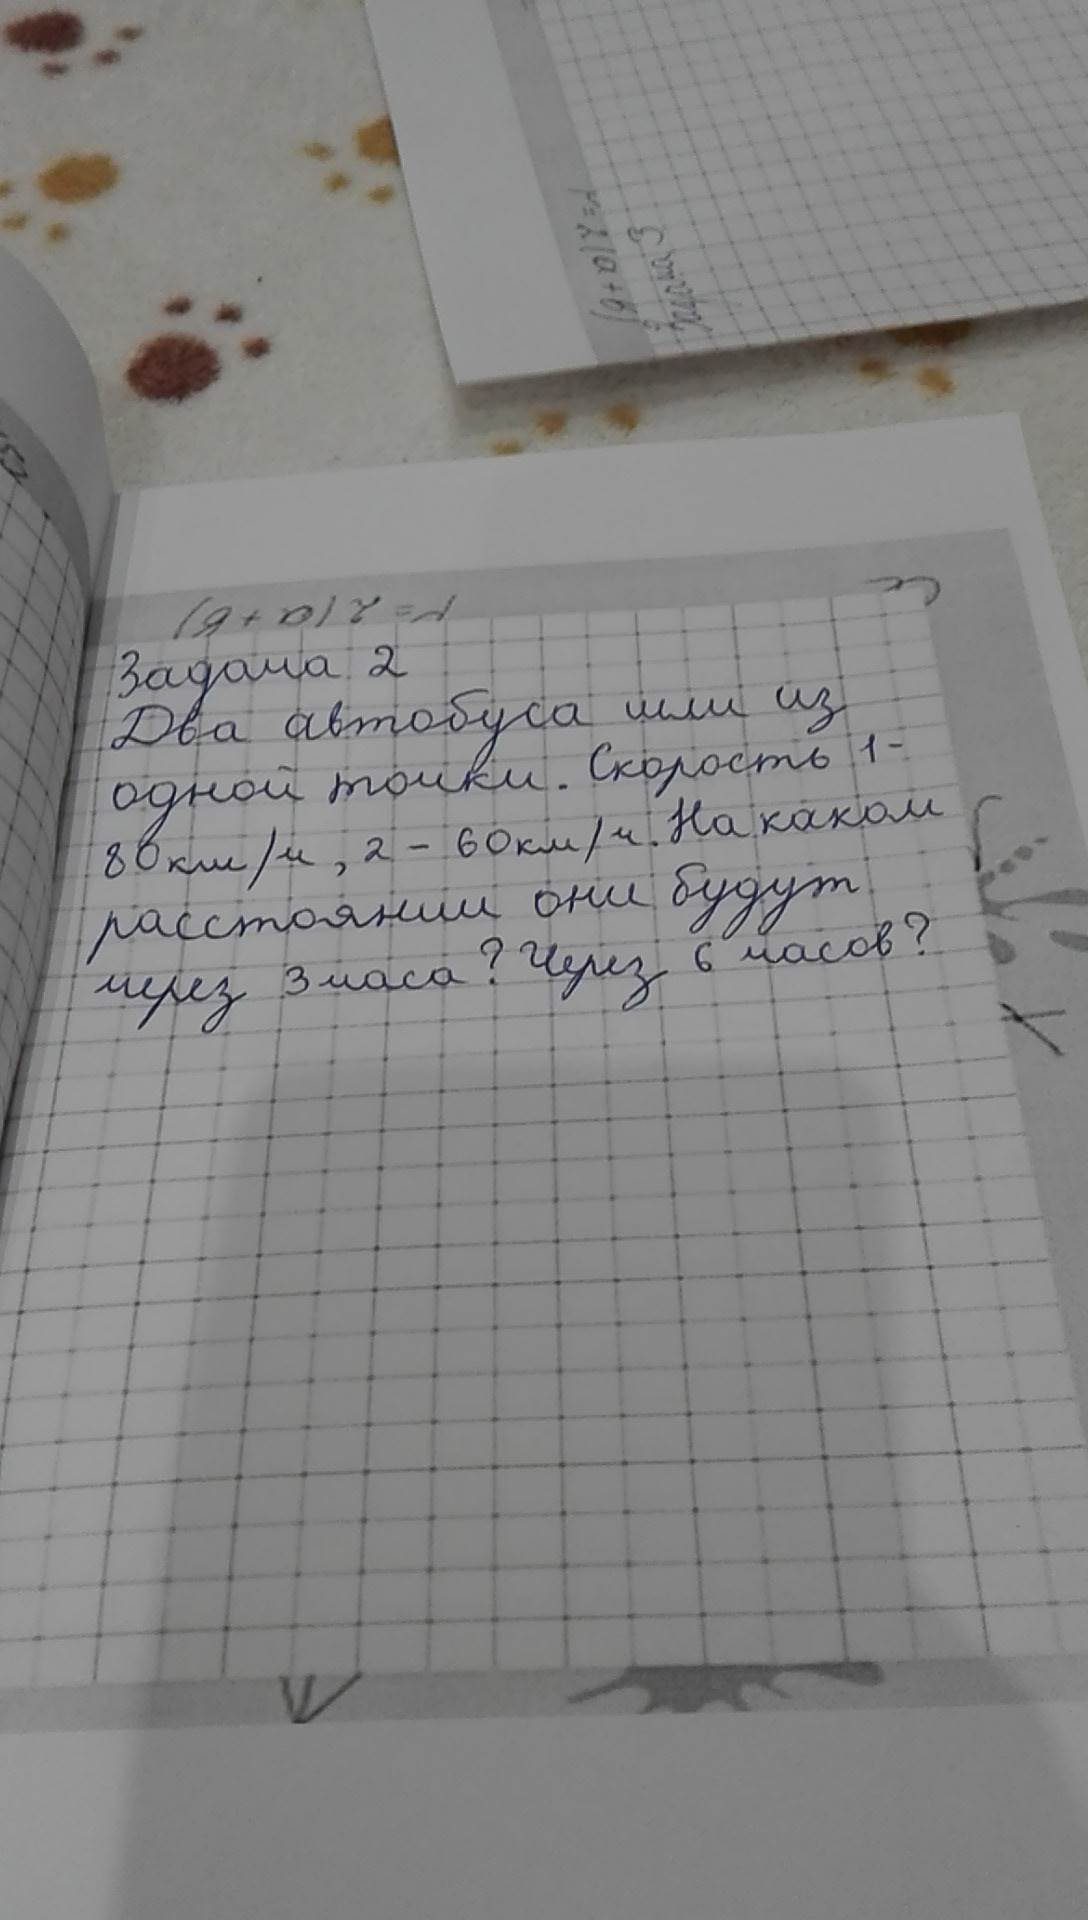 Задача 2
Два автобуса шли из
одной точки. Скорость 1-
80км/ч, 2 - 60км/ч. На каком
расстоянии они будут
через 3 часа? Через 6 часов?
Задача 3